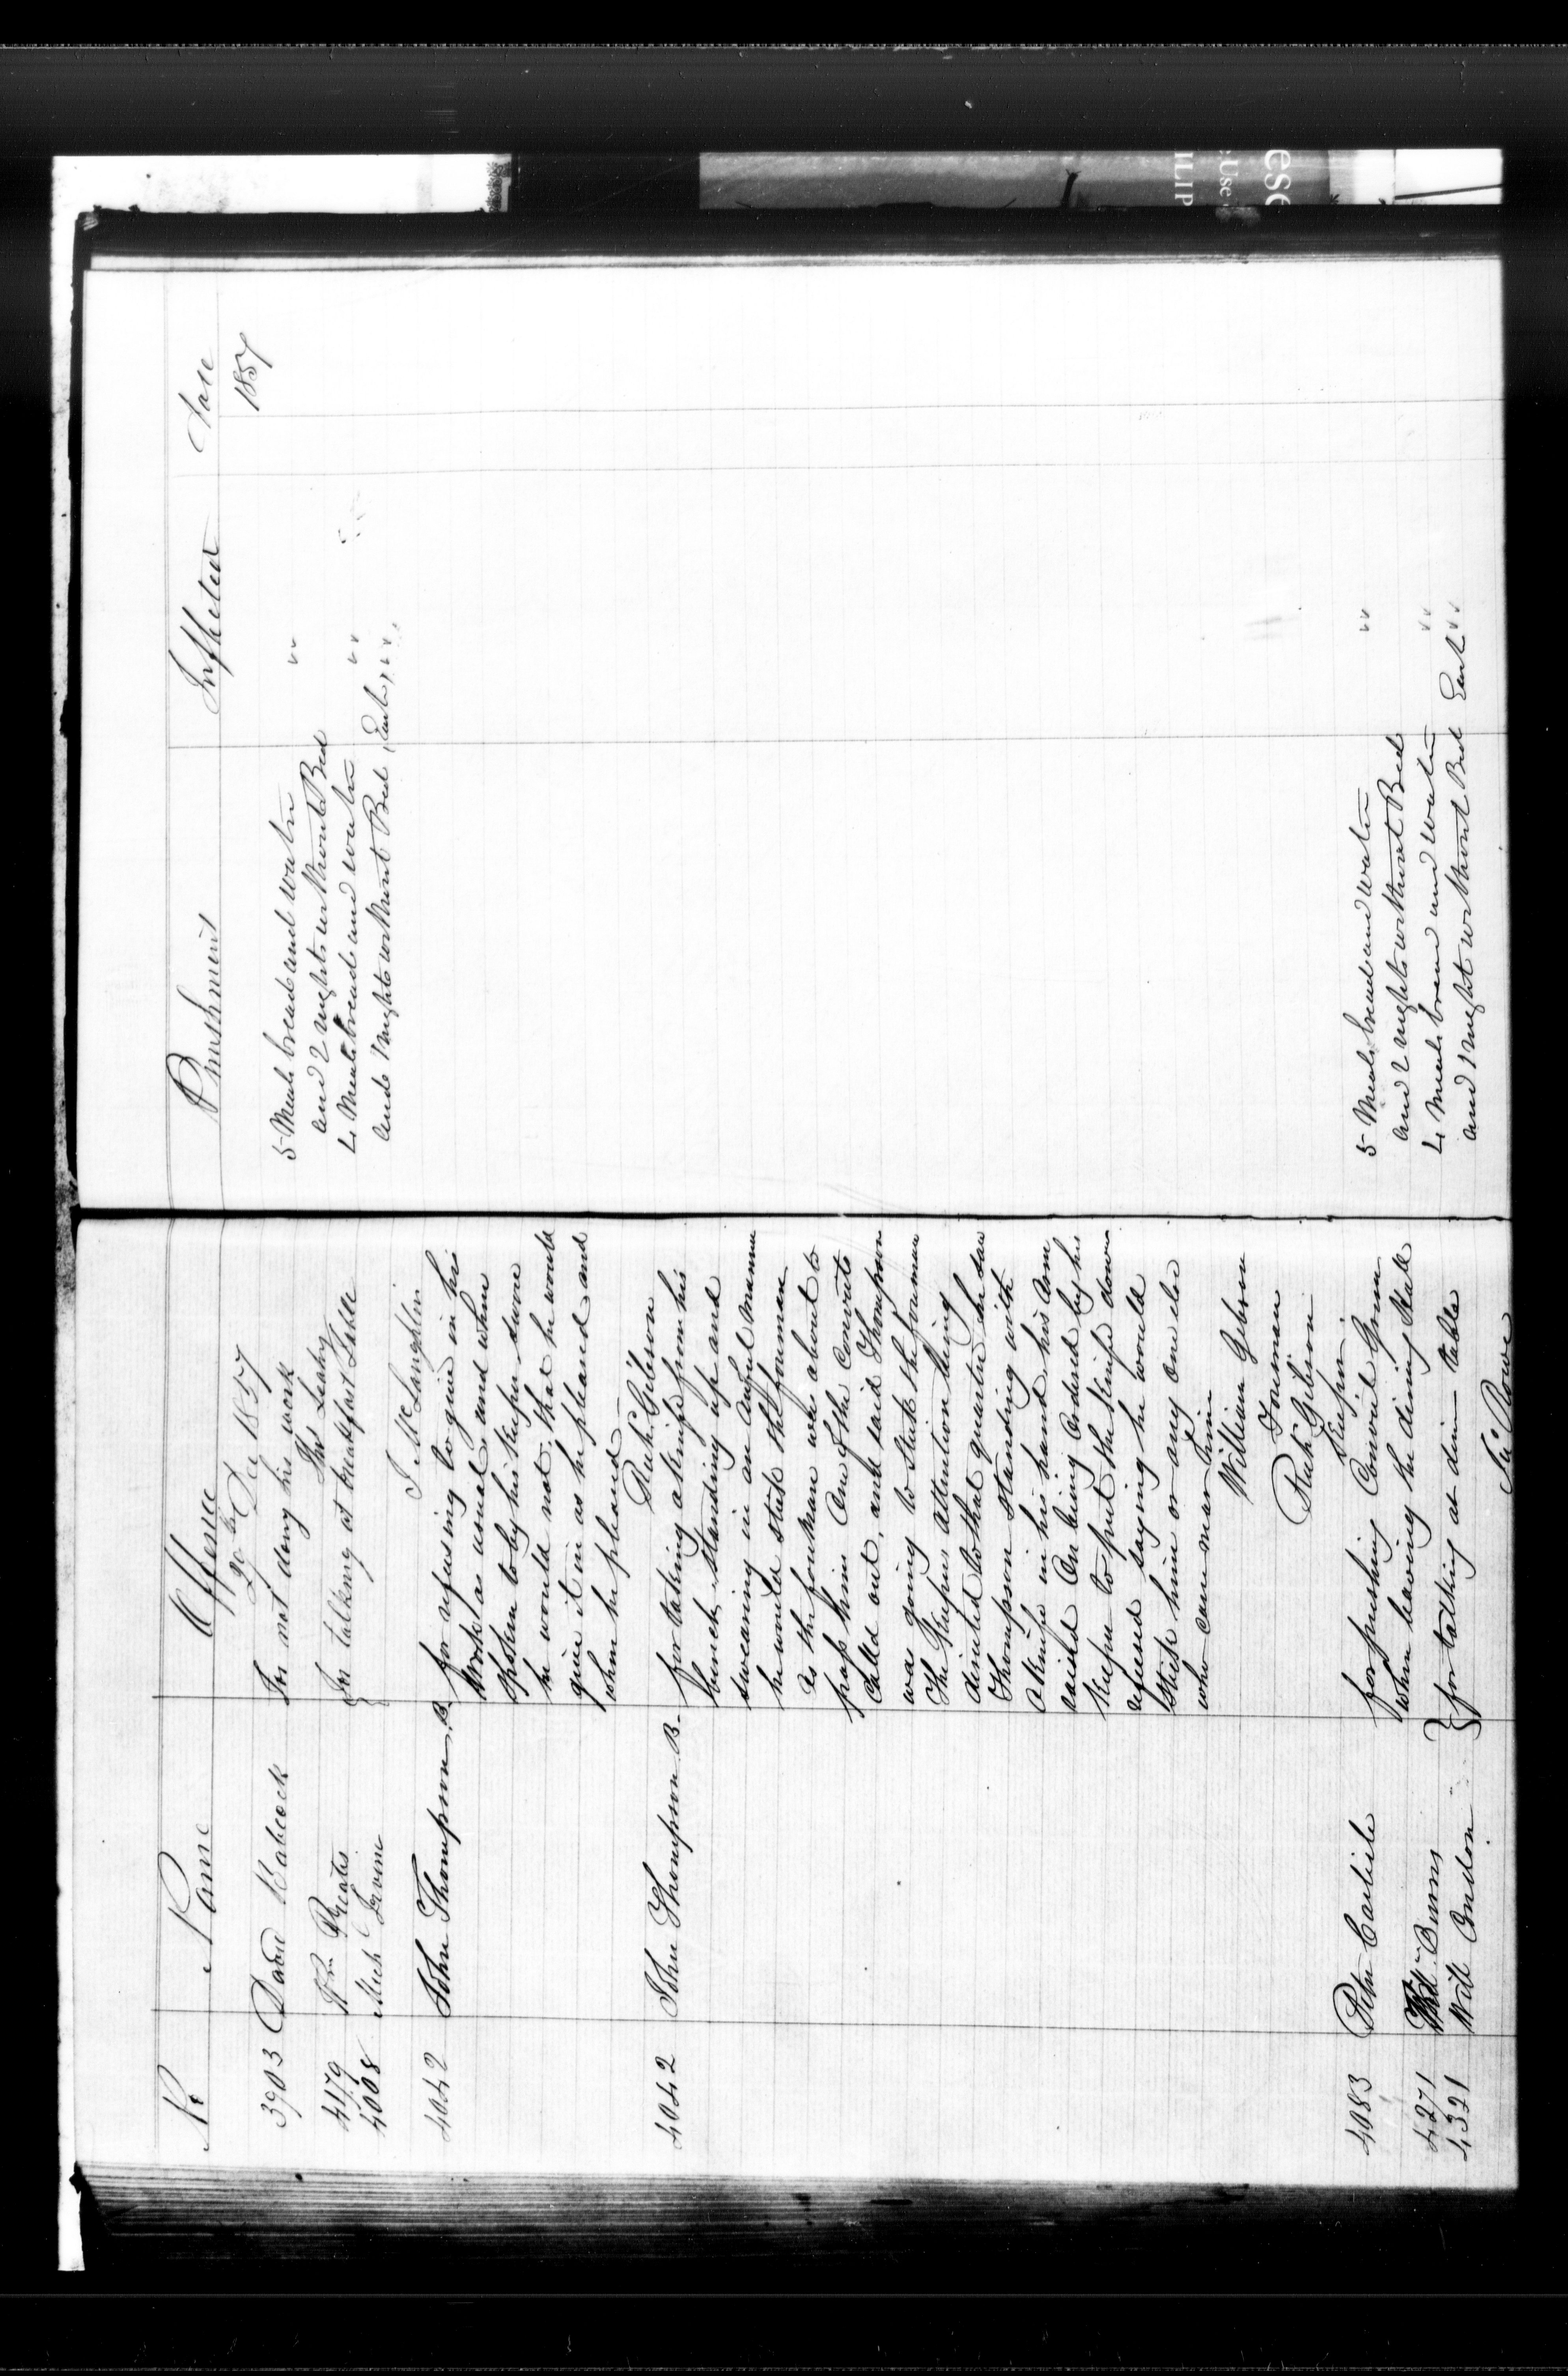 No Name Offence Punishment Inflicted Date
Dec 1857 1857
3903 David Babcock For not doing his work 5 Meals bread and water " "
Leahy and 2 nights without Bed
4179 Wm For talking at breakfast table 4 Meals bread and water " "
4008 Mich Irvine and 1 nights without Bed " "
J McLaughlin
4042 John Thompson B. for refusing to give in his
work as usual and when
spoken to by his Keeper swore
he would not, that he would
give it in as he pleased and
when he pleased
Gibson
4042 John Thompson B. for taking a knife from his
bench, standing up and
swearing in an awful manner
he would stick the foreman
as the foreman was about to
pass him One of the Convicts
Calld out, and said Thompson
was going to stick the foreman
The Keepers attention being
directed to that quarter he saw
Thompson standing with
a knife in his hand, his arm
raised On being Ordered by his
Keeper to put the knife down
refused saying he would
stick him or any one else
who came near him
William Gibson
Foreman
Gibson
Keeper
4083 Peter Carlisle for pushing Convict 5 Meals bread and water " "
when leaving the dining Hall and 2 nights without Bed
4271 Burns for talking at dinn table 4 Meals bread and water " "
4321 Will Condon and 1 night without Bed " "
Rowe
esc
: Use
HLIP